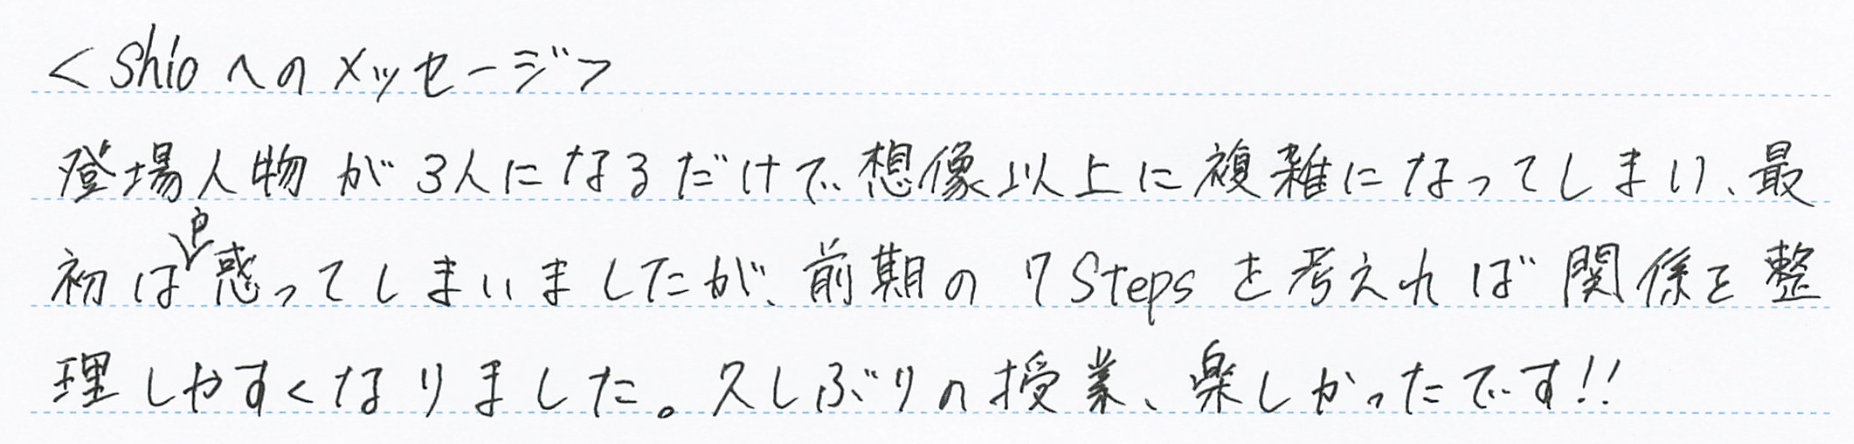 <Shioへのメッセージ>
登場人物が3人になるだけで、想像以上に複雑になってしまい、最
初は戸惑ってしまいましたが、前期の7Stepsを考えれば関係を整
理しやすくなりました。久しぶりの授業、楽しかったです!!